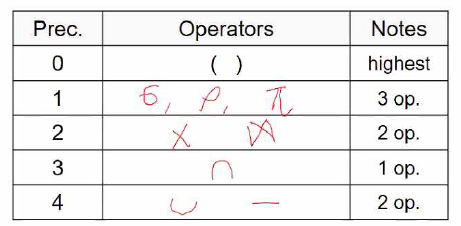 Prec. Operators Notes
0 ( ) highest
1 σ, ρ, π 3 op.
2 × ⋈ 2 op.
3 ∩ 1 op.
4 ∪ — 2 op.